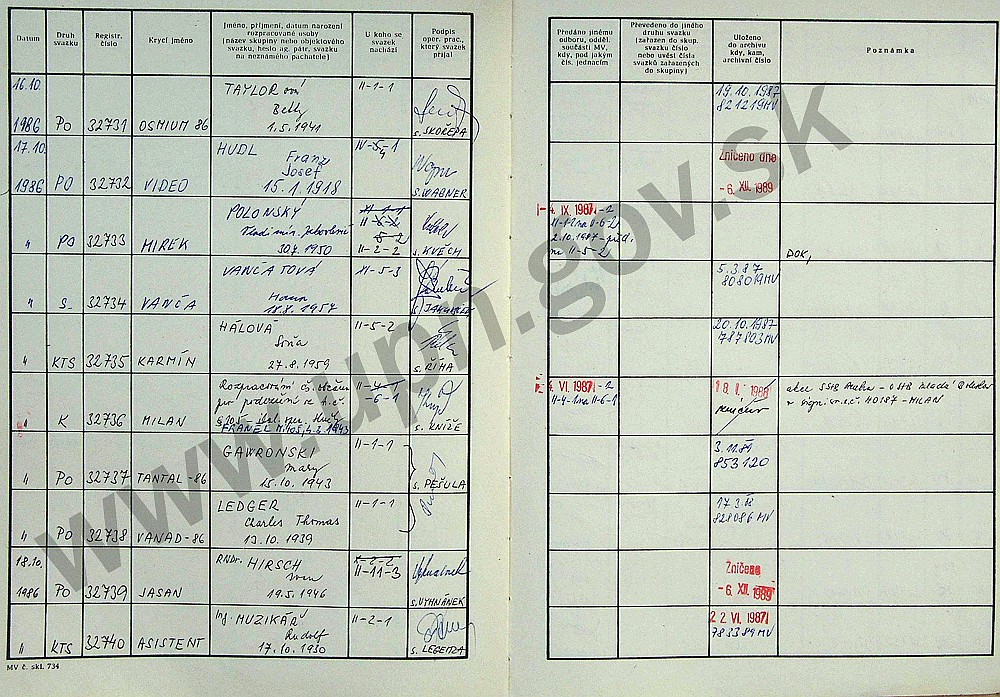 Datum
Druh svazku
Registr. číslo
Krycí jméno
Jméno, příjmení, datum narození
rozpracované osoby
(název skupiny nebo objektového
svazku, heslo ag. pátr. svazku
na neznámého pachatele)
U koho se
svazek
nachází
Podpis
oper. prac.,
který svazek
přijal
Předáno jinému
odboru, odděl.
součásti MV,
kdy, pod jakým
čís. jednacím
Převedeno do jiného
druhu svazku
(zařazen do skup.
svazku číslo
nebo uvést čísla
svazků zařazených
do skupiny)
Uloženo
do archivu
kdy, kam,
archivní číslo
Poznámka
16.10.
1986 PO 32731 OSMIUM 86
TAYLOR
Betty
1.5.1941
II-1-1
s. SKOŘEPA
19.10.1987
821219MV
17.10.
1986 PO 32732 VIDEO
HUDL Franz
Josef
15.1.1918
IV-5-1
4
s. WABNER
Zničeno dne
-6. XII. 1989
" PO 32733 MIREK
POLONSKÝ
30.7.1950
II-2-2
s. KVĚCH
4. IX. 1987 -2
II-1-2 na II-6-2
2.10.1987
na II-5-2
DOK,
" S- 32734 VANČA
VANČATOVÁ
Hana
1957
XI-5-3
5.3.87
808019MV
" KTS 32735 KARMÍN
HÁLOVÁ
Soňa
27.8.1959
II-5-2
s. ŘÍHA
20.10.1987
787803MV
" K 32736 MILAN
Rozpracování čs. občana
pro podezření z tr. č.
II-4-1
-6-1
s. KNÍŽE
4. VI. 1987 -2
II-4-1 na II-6-1
18. I. 1988
40187-MILAN
" PO 32737 TANTAL-86
GAWRONSKI
Mary
15.10.1943
II-1-1
s. PEŠULA
3.11.89
853120
" PO 32738 VANAD-86
LEDGER
Charles Thomas
13.10.1939
II-1-1
17.3.88
828086 MV
18.10.
1986 PO 32739 JASAN
RNDr. HIRSCH
Ivan
19.5.1946
II-11-3
s. VYHNÁNEK
Zničeno
-6. XII. 1989
" KTS 32740 ASISTENT
Ing. MUZIKÁŘ
Rudolf
17.10.1930
II-2-1
s. LEGEMZA
22. VI. 1987
783389MV
MV č. skl. 734
www.upn.gov.sk